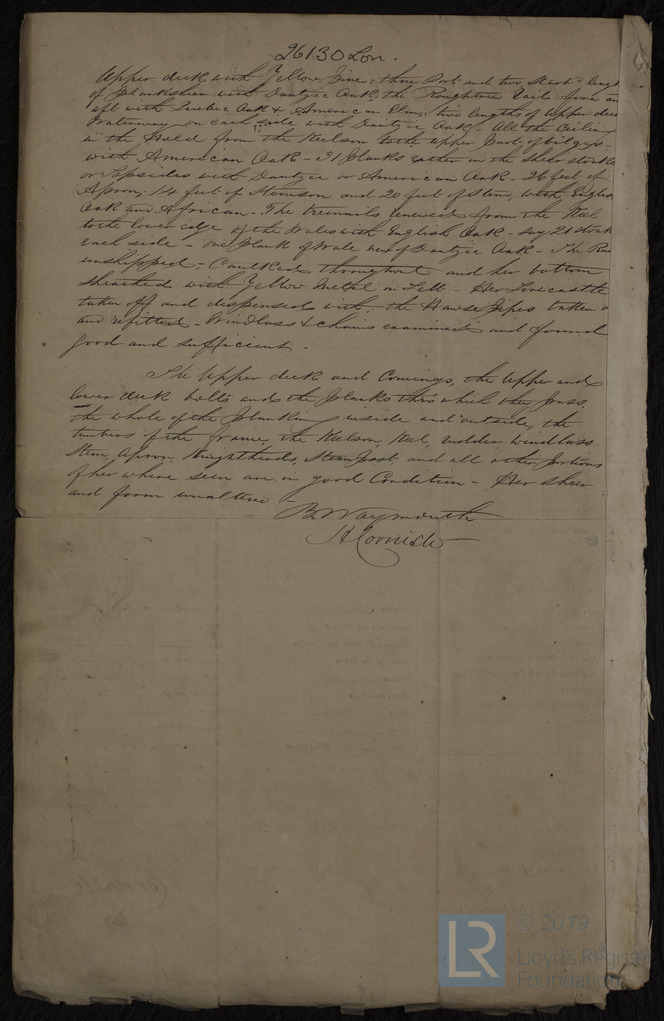 26130 Lon.
Upper deck with Yellow Pine: three Port and two Starb lengths
of planksheer with Dantzic Oak, the Roughtree Rails fore an
aft with Quebec Oak & American Elm; two lengths of Upper deck
Waterway on each side with Dantzic Oak - All the Ceiling
in the Hold from the Keelson to the Upper part of bilges -
with American Oak - 31 planks either in the sheer strake
or Topsides with Dantzic or American Oak - 26 feet of
Apron, 14 feet of Stemson and 20 feet of Stem, with English
Oak and African - The treenails renewed from the Keel
to the lower edge of the Wales with English Oak - say 21 strak
each side - one plank of Wale new of Dantzic Oak - The Rud
unshipped - Caulked throughout and her bottom
sheathed with Yellow Metal on Felt - Her Forecastle
taken off and dispensed with, the Hawse pipes taken o
and refitted - Windlass & chains examined and found
good and sufficient -
The Upper deck and Comings, the Upper and
lower deck bolts and the planks thro which they pass,
the whole of the planking inside and outside, the
timbers of the frame, the Keelson, Keel, rudder, windlass
Stem, Apron, Knightheads, Sternpost, and all other portions
of her where seen are in good Condition - Her sheer
and form unaltered
B. Waymouth
H Cornish
LR © 2019
Lloyd's Register
Foundation